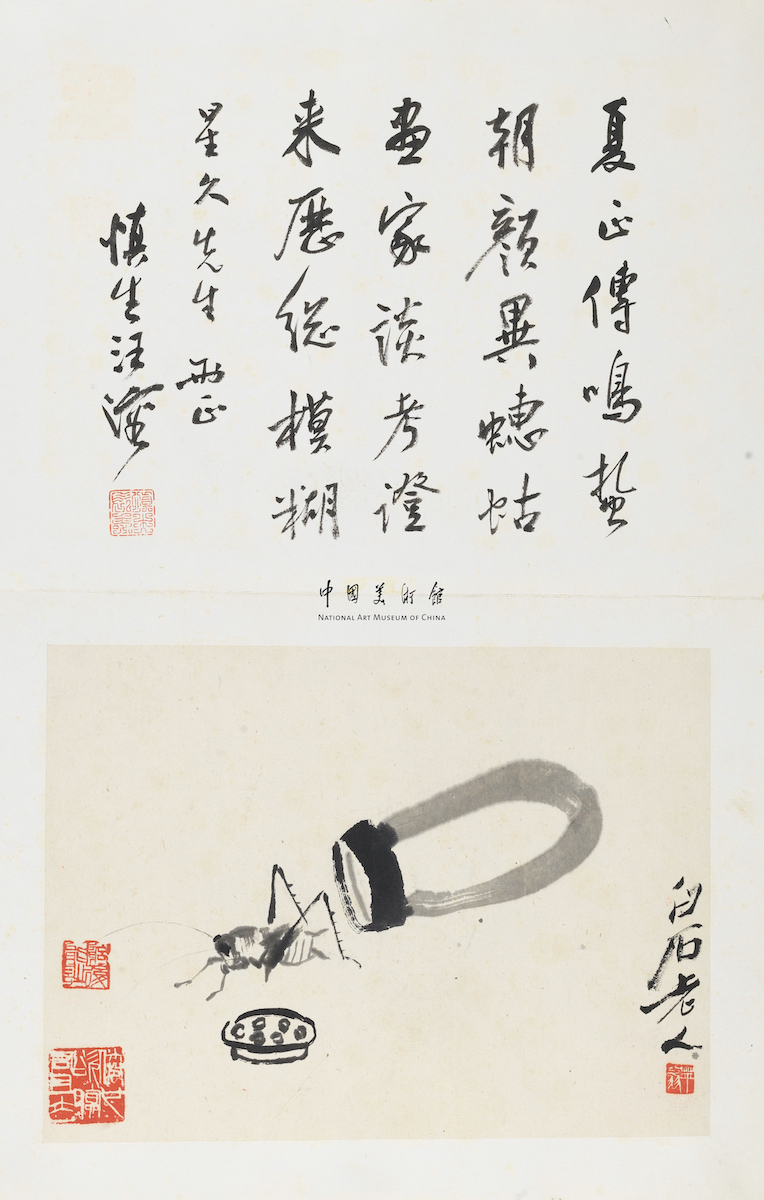 夏正傳鳴蜇
朝顏異蟪蛄
畫家談考證
来歷總模糊
星久先生 正
慎生汪溶
中国美术館
NATIONAL ART MUSEUM OF CHINA
白石老人